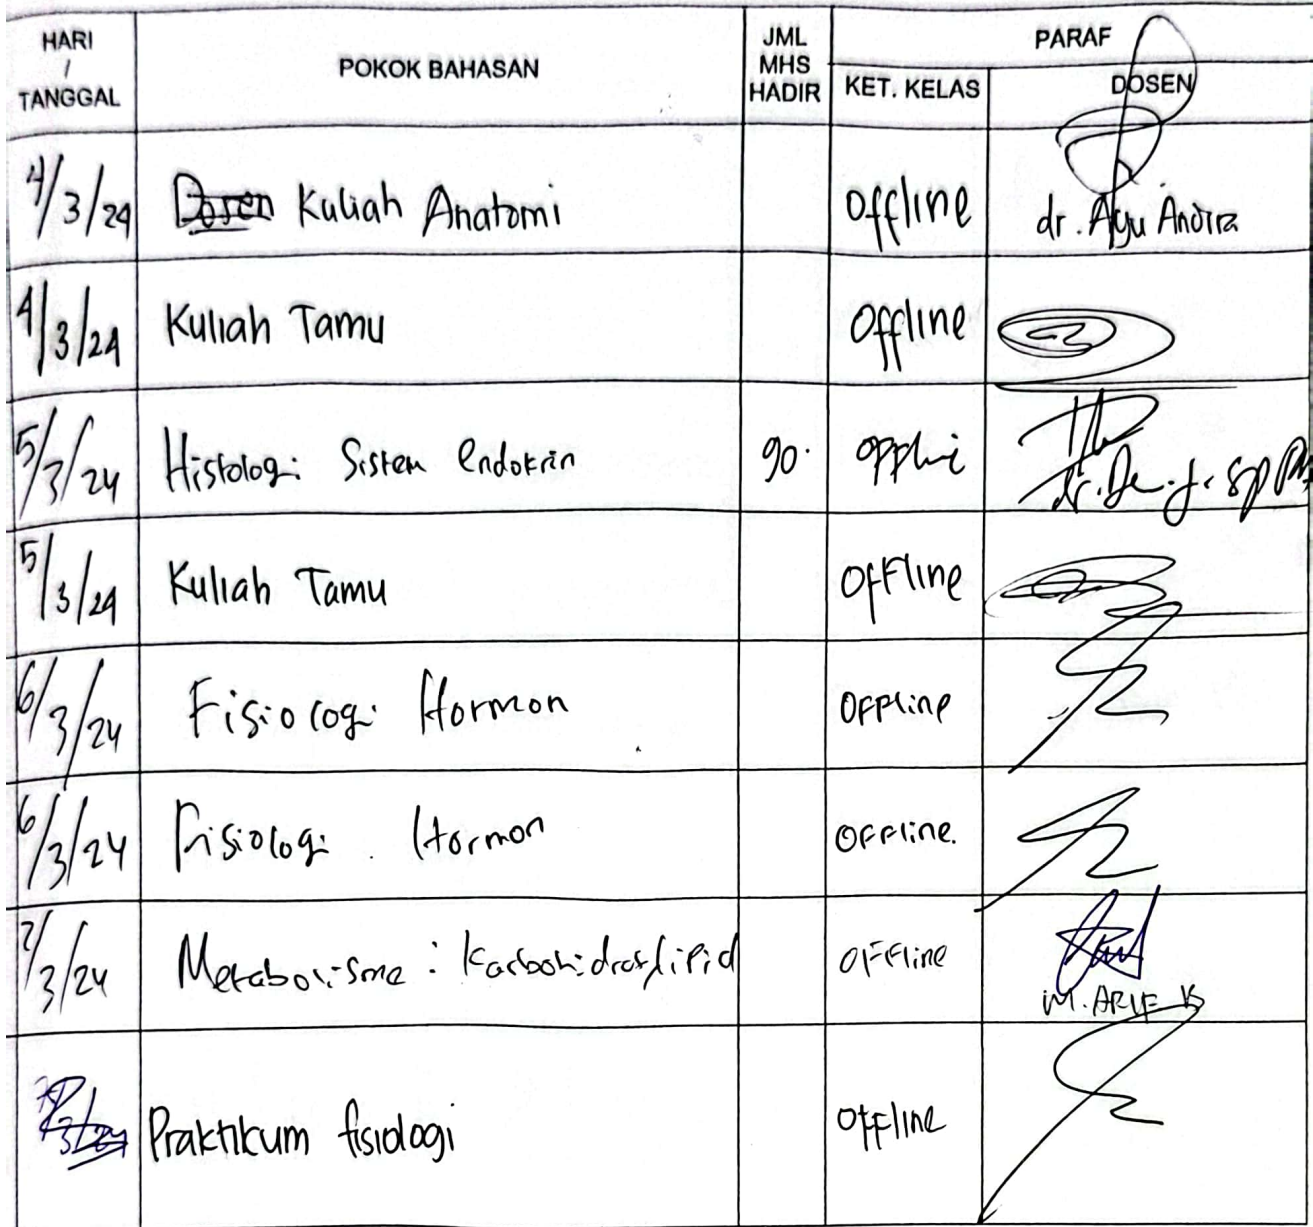 HARI / TANGGAL POKOK BAHASAN JML MHS HADIR PARAF
KET. KELAS DOSEN
4/3/24 Kuliah Anatomi Offline dr. Ayu Andira
4/3/24 Kuliah Tamu Offline
5/3/24 Histologi Sistem endokrin 90. offline
5/3/24 Kuliah Tamu OfFline
6/3/24 Fisiologi Hormon Offline
6/3/24 Fisiologi Hormon Offline.
7/3/24 Metabolisme : Karbohidrat, lipid Offline
M. ARIF K
Praktikum fisiologi Offline